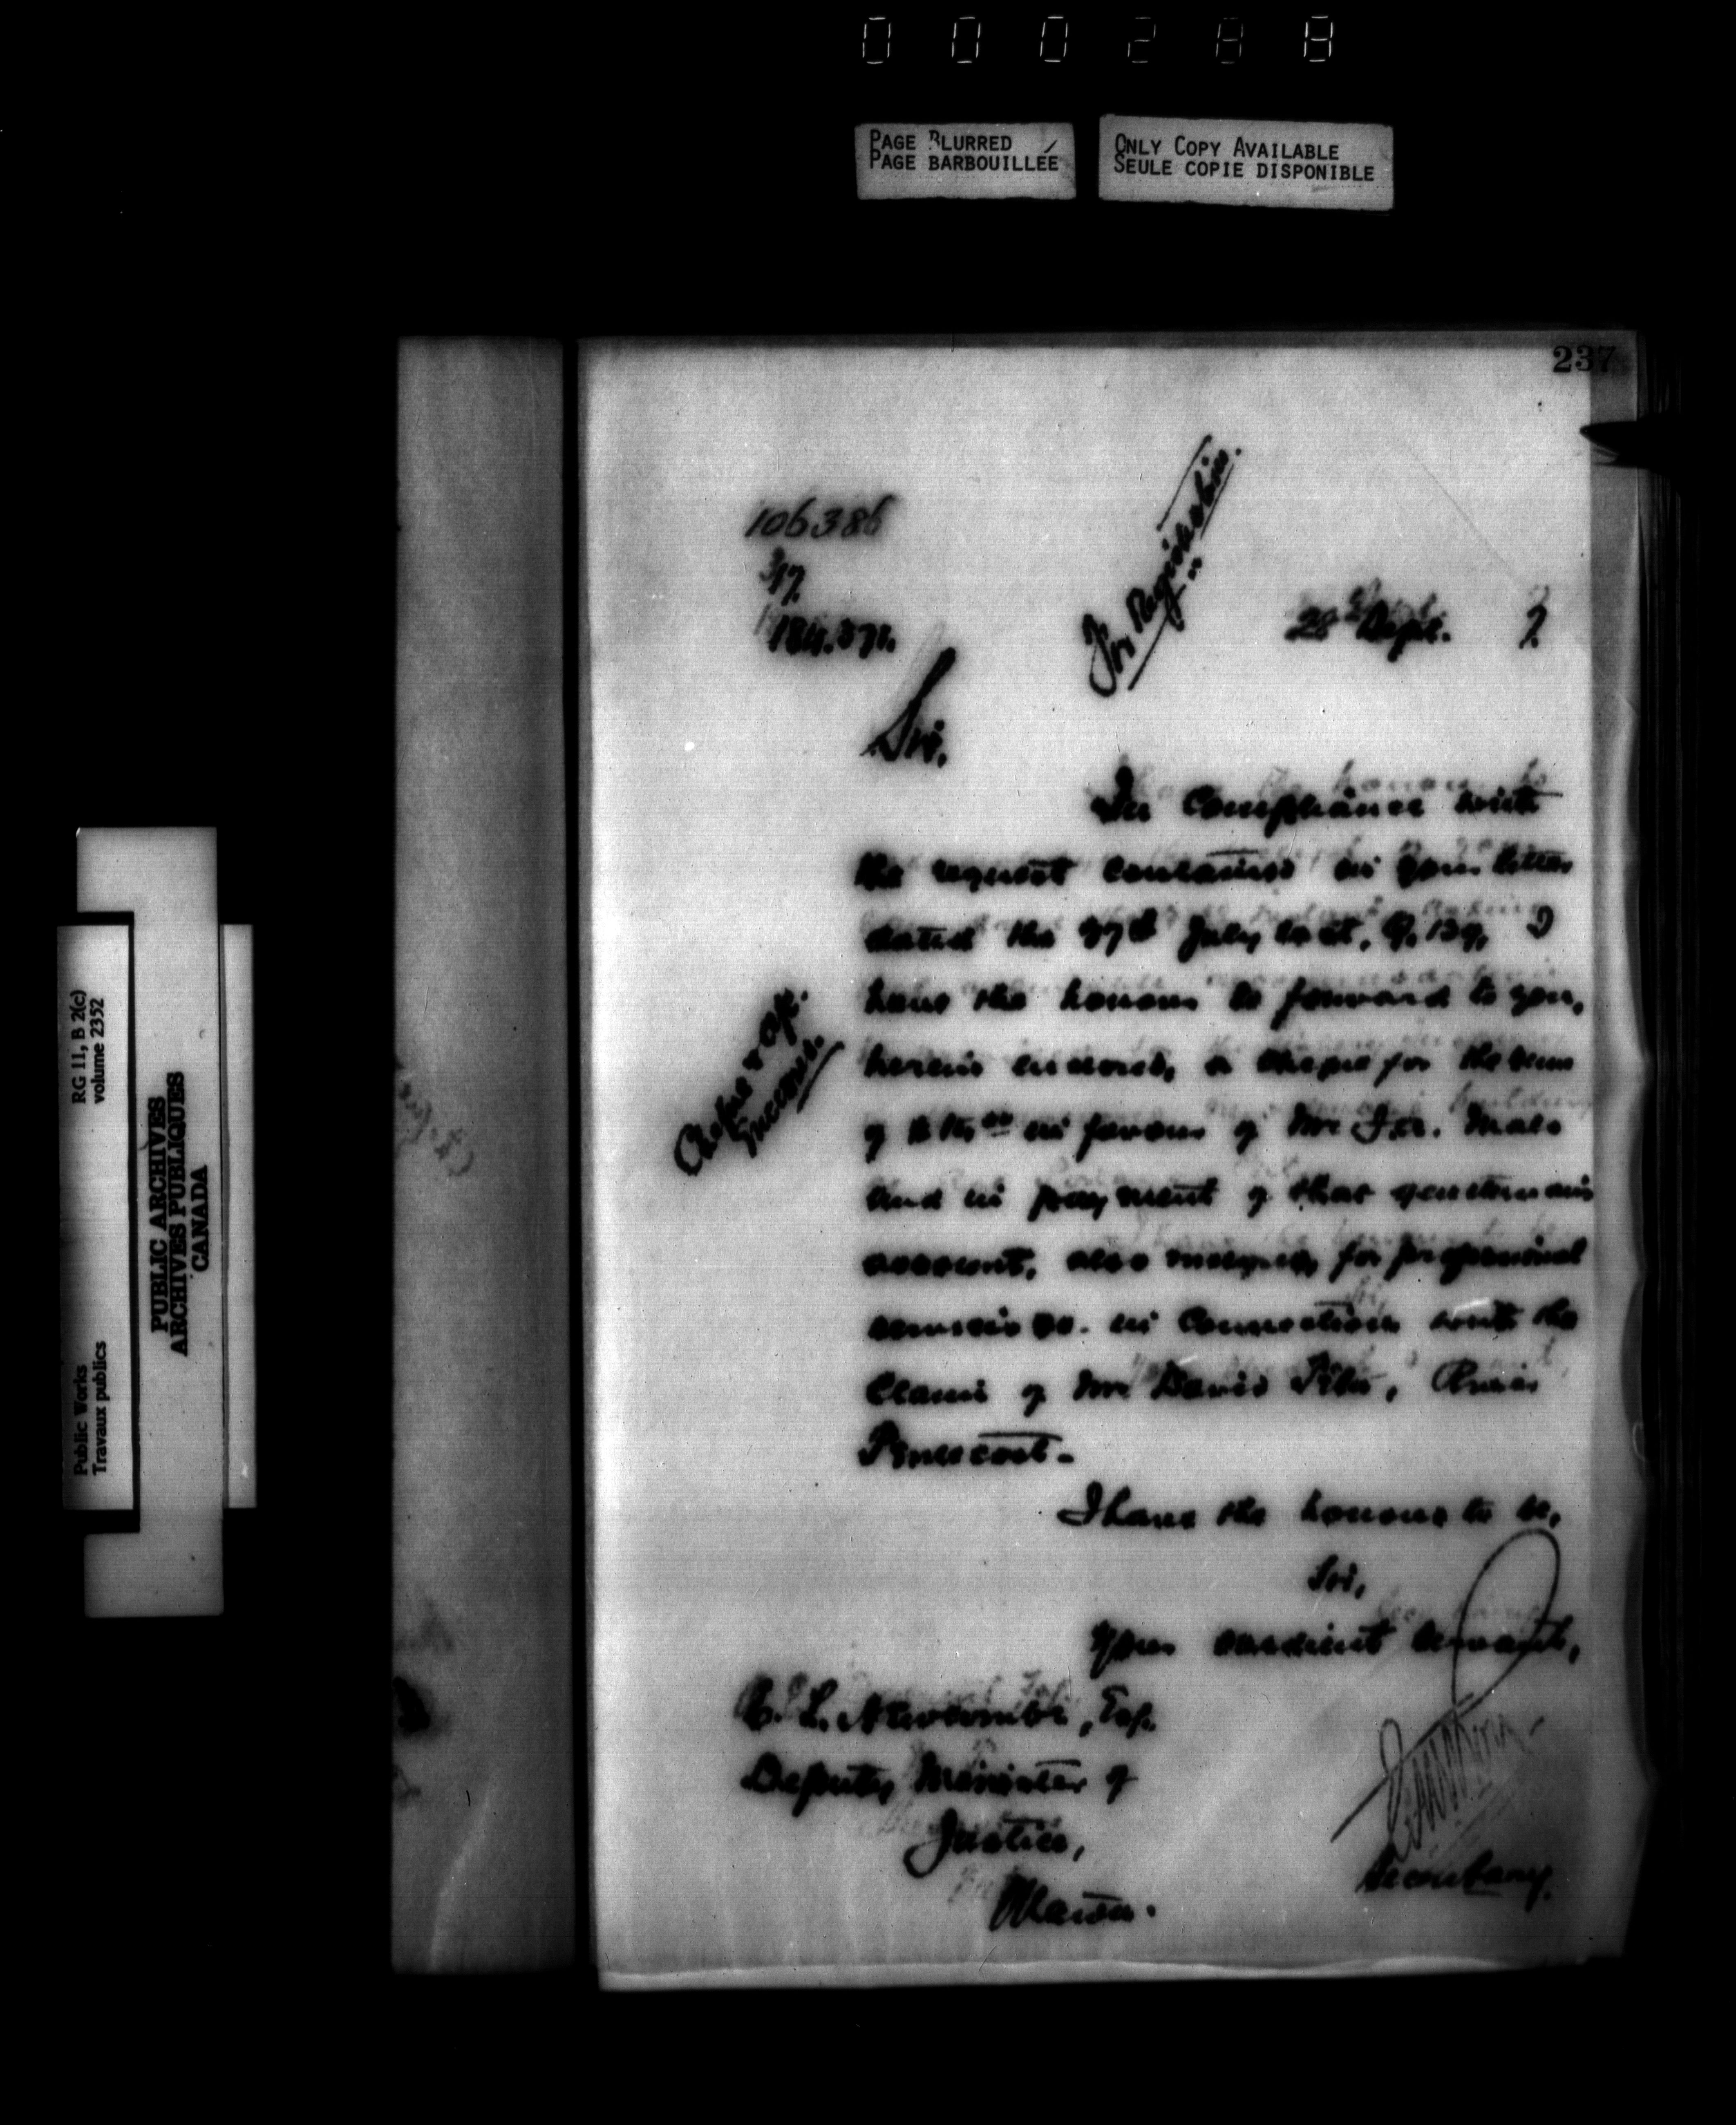 000288
PAGE BLURRED
PAGE BARBOUILLÉE
ONLY COPY AVAILABLE
SEULE COPIE DISPONIBLE
237
106386
317
184.371.
For Registration.
28th Sept. 7
Sir,
In compliance with
the request contained in your letter
dated the 27th July last, 9.139, I
have the honour to forward to you,
herein enclosed, a cheque for the sum
of in favour of Mr.
and in payment of that gentleman's
account, also enclosed, for professional
services in connection with the
claim of Mr David
I have the honour to be,
Sir,
Your obedient servant,
E. L. Newcombe, Esq.
Deputy Minister of
Justice,
Ottawa.
Secretary.
Cheque & ap.
RG 11, B 2(c)
volume 2352
PUBLIC ARCHIVES
ARCHIVES PUBLIQUES
CANADA
Public Works
Travaux publics